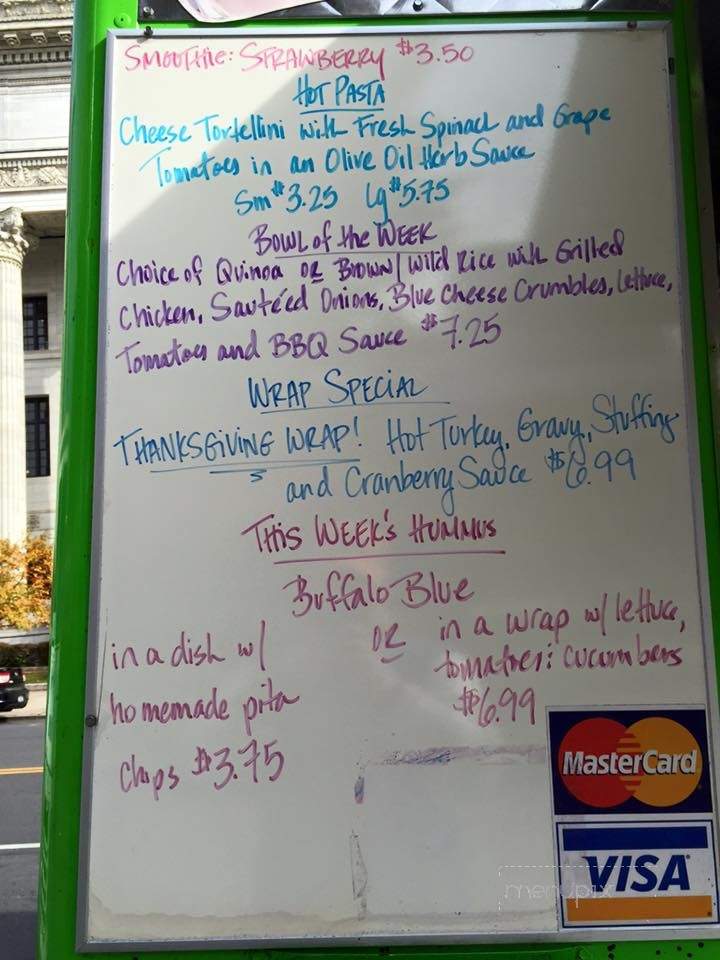 SMOOTHIE: STRAWBERRY $3.50
HOT PASTA
Cheese Tortellini with Fresh Spinach and Grape
Tomatoes in an Olive Oil Herb Sauce
Sm $3.25 Lg $5.75
BOWL of the WEEK
Choice of Quinoa OR Brown/Wild Rice with Grilled
Chicken, Sautéed Onions, Blue Cheese Crumbles, Lettuce,
Tomatoes and BBQ Sauce $7.25
WRAP SPECIAL
THANKSGIVING WRAP! Hot Turkey, Gravy, Stuffing
and Cranberry Sauce $6.99
THIS WEEK'S HUMMUS
Buffalo Blue
in a dish w/
homemade pita
chips $3.75
OR
in a wrap w/ lettuce,
tomatoes: cucumbers
$6.99
MasterCard
VISA
menupix